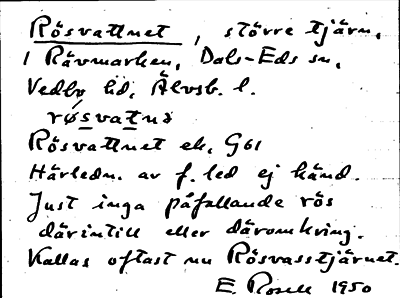 Rösvattnet, större tjärn,
i Rävmarken, Dals-Eds sn,
Vedbo hd, Älvsb. l.
røsvatnə
Rösvattnet ek. G61
Härledn. av f. led ej känd.
Just inga påfallande rös
därintill eller däromkring.
Kallas oftast nu Rösvasstjärnet.
E. Rosell 1950